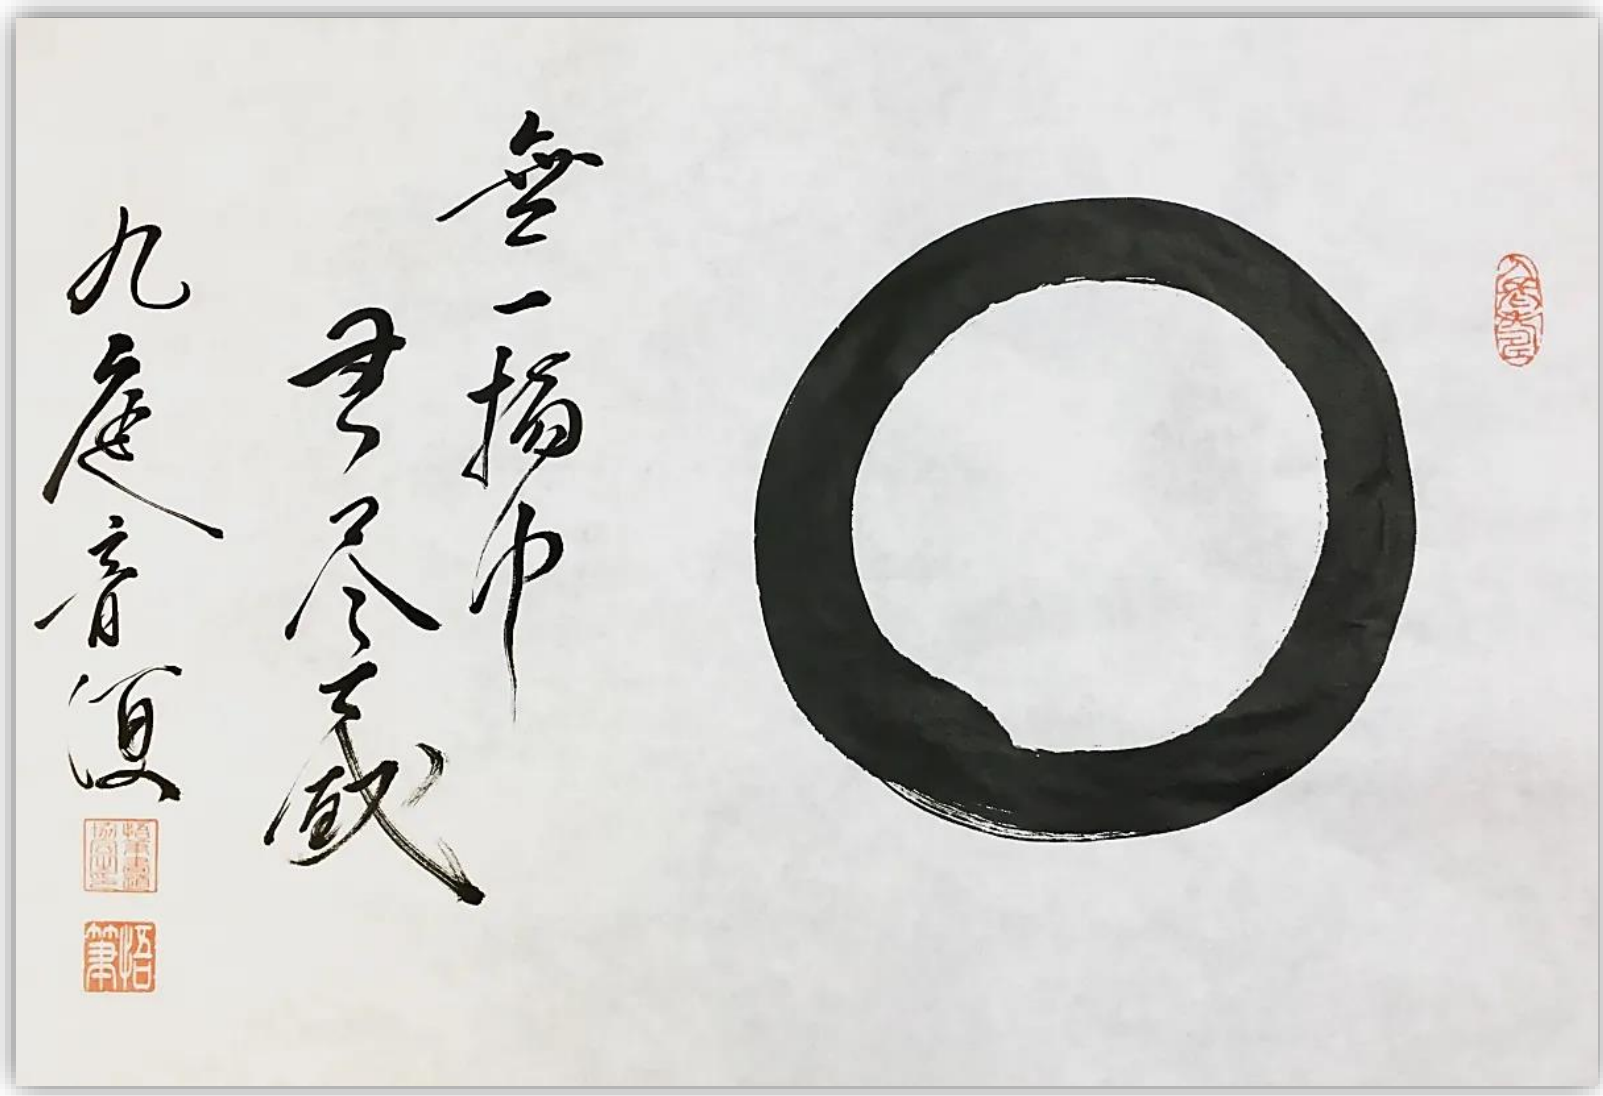 無一物中
無尽蔵
九庭音
悟筆